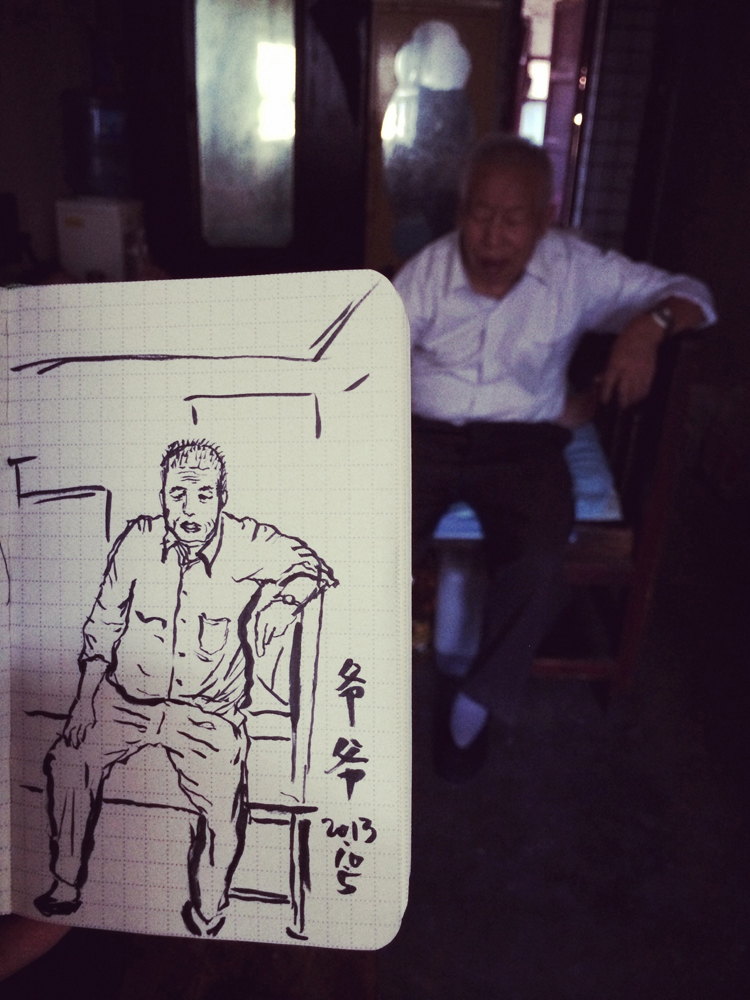 爷
爷
2013
.10
.5